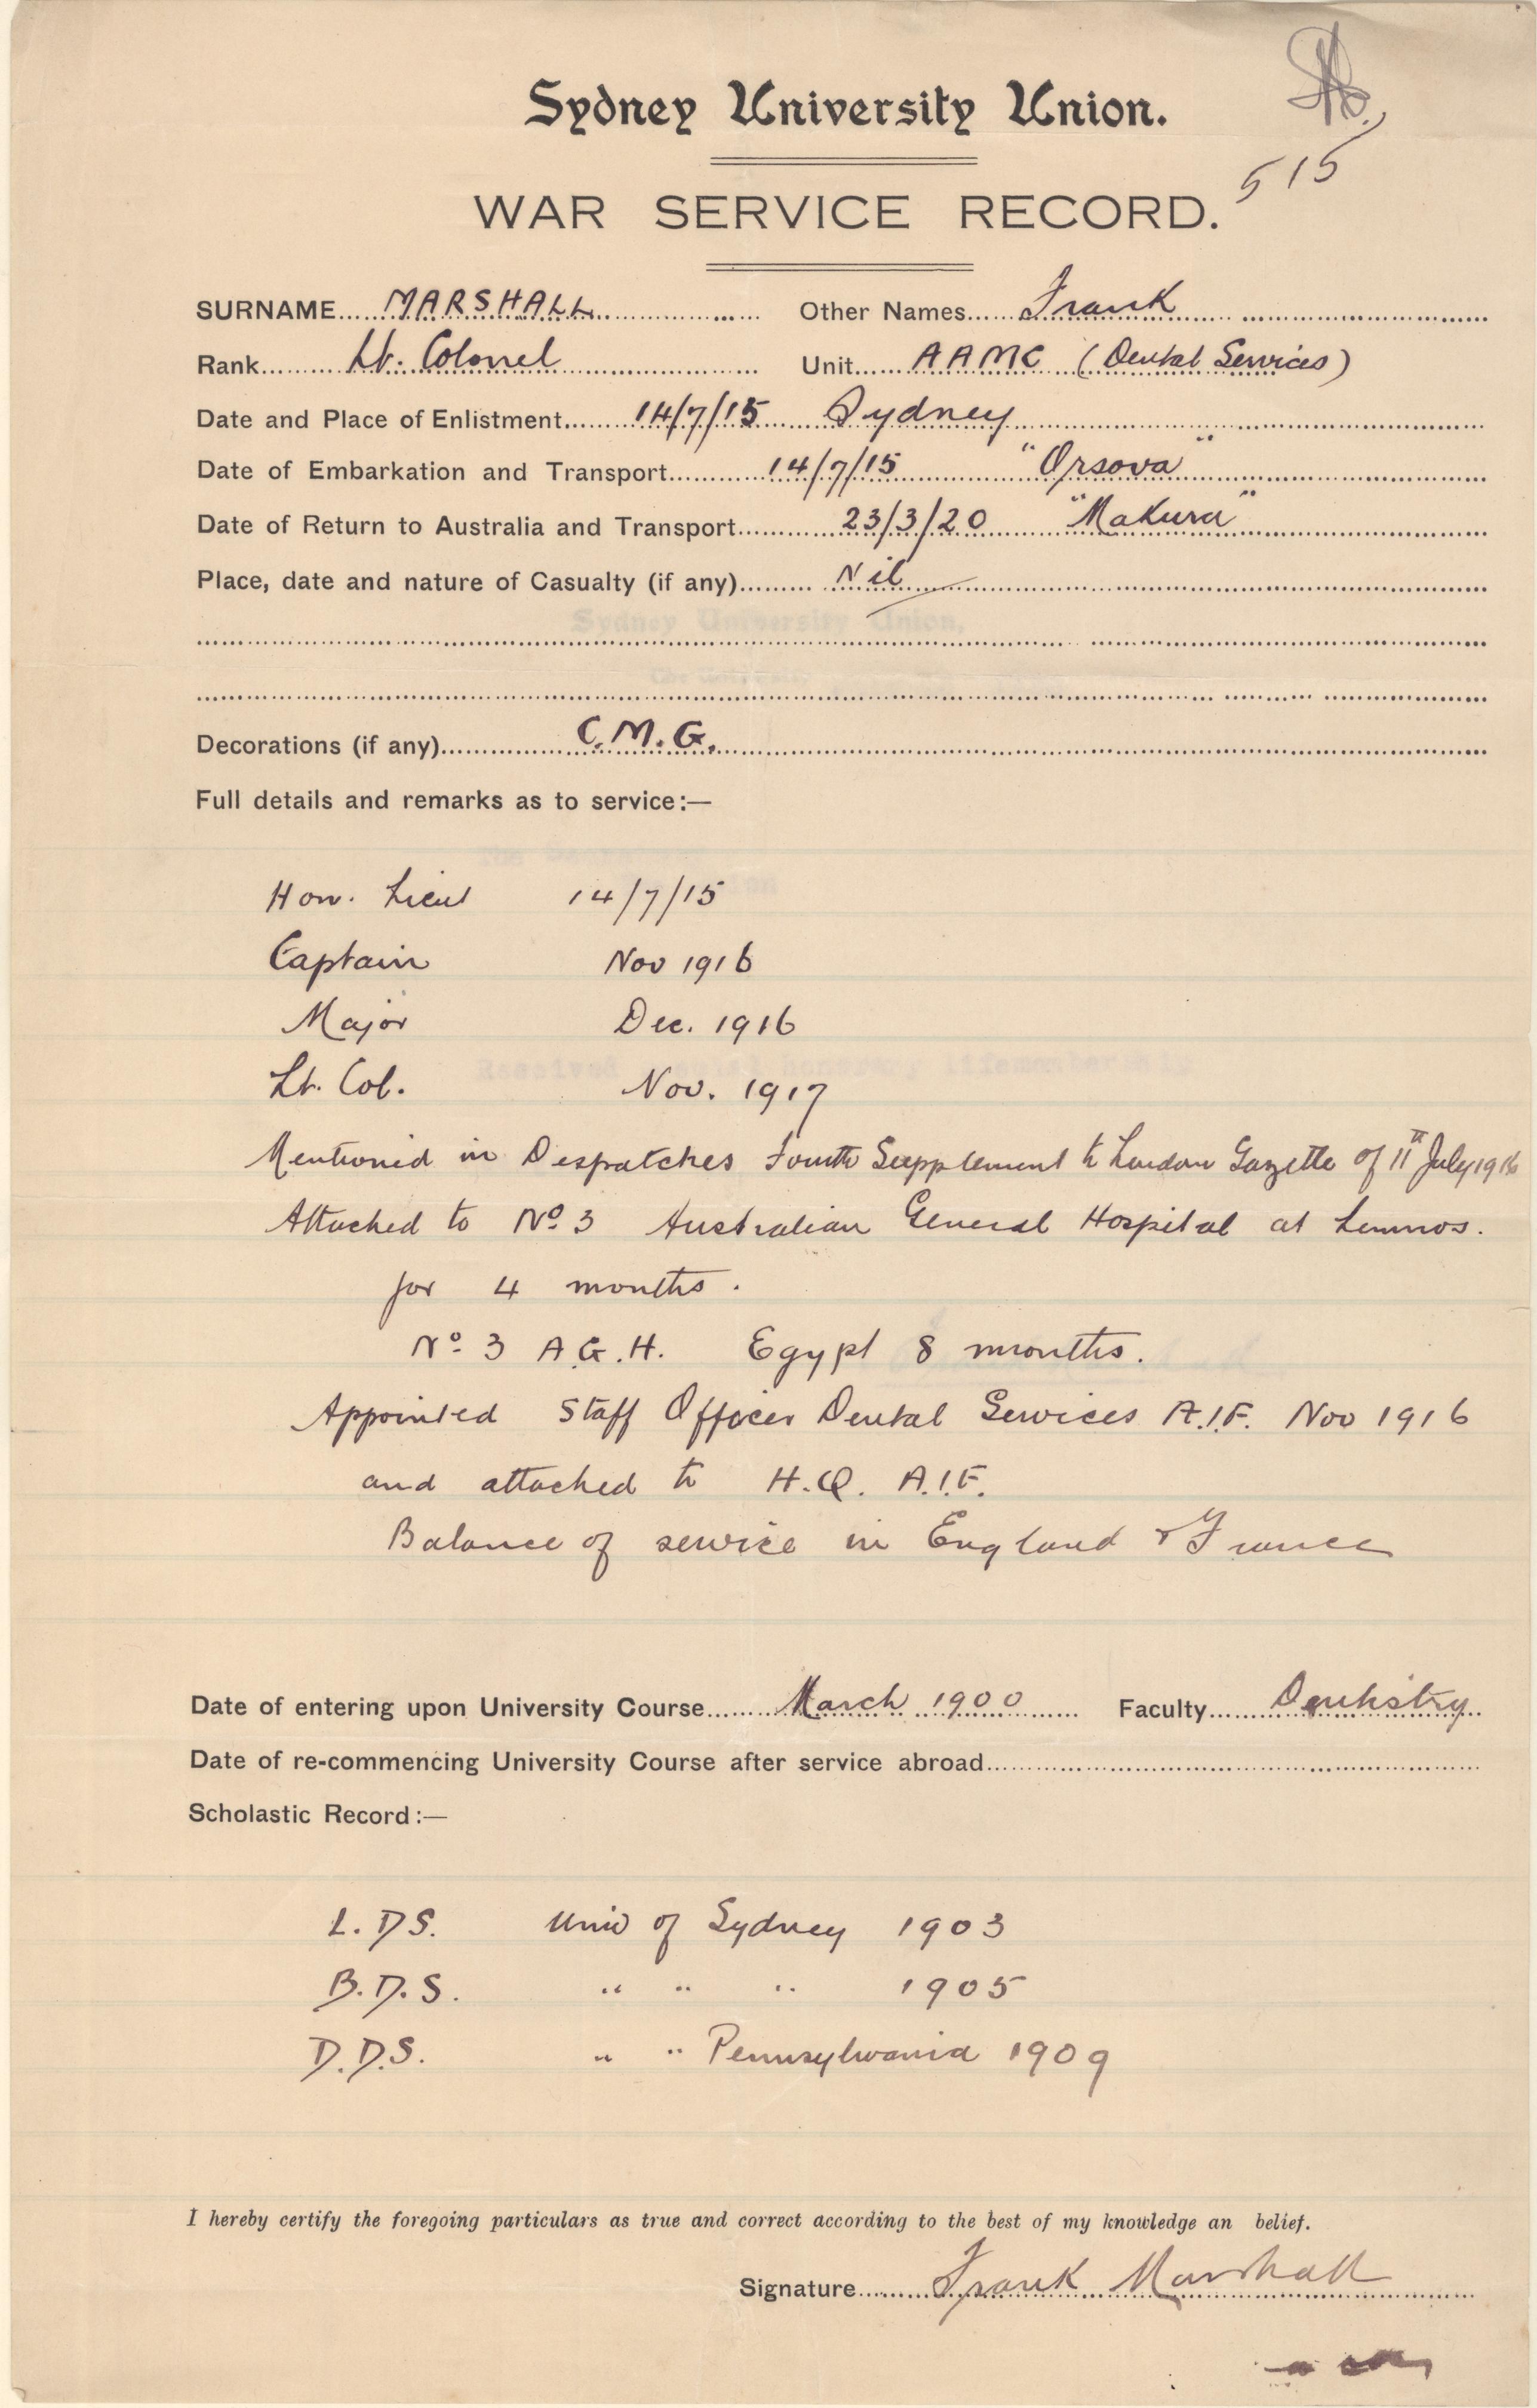 Sydney University Union.
515
WAR SERVICE RECORD.
SURNAME MARSHALL Other Names Frank
Rank Lt. Colonel Unit AAMC (Dental Services)
Date and Place of Enlistment 14/7/15 Sydney
Date of Embarkation and Transport 14/7/15 "Orsova"
Date of Return to Australia and Transport 23/3/20 "Makura"
Place, date and nature of Casualty (if any) Nil
Sydney University Union,
Decorations (if any) C.M.G.
Full details and remarks as to service:—
Hon. Lieut 14/7/15
Captain Nov 1916
Major Dec. 1916
Received honorary lifemembership
Lt. Col. Nov. 1917
Mentioned in Despatches Fourth Supplement to London Gazette of 11th July 1916
Attached to No 3 Australian General Hospital at Lemnos.
for 4 months.
No 3 A.G.H. Egypt 8 months.
Appointed Staff Officer Dental Services A.I.F. Nov 1916
and attached to H.Q. A.I.F.
Balance of service in England & France
Date of entering upon University Course March 1900 Faculty Dentistry
Date of re-commencing University Course after service abroad
Scholastic Record:—
L.D.S. Univ of Sydney 1903
B.D.S. " " " 1905
D.D.S. " " Pennsylvania 1909
I hereby certify the foregoing particulars as true and correct according to the best of my knowledge an belief.
Signature Frank Marshall